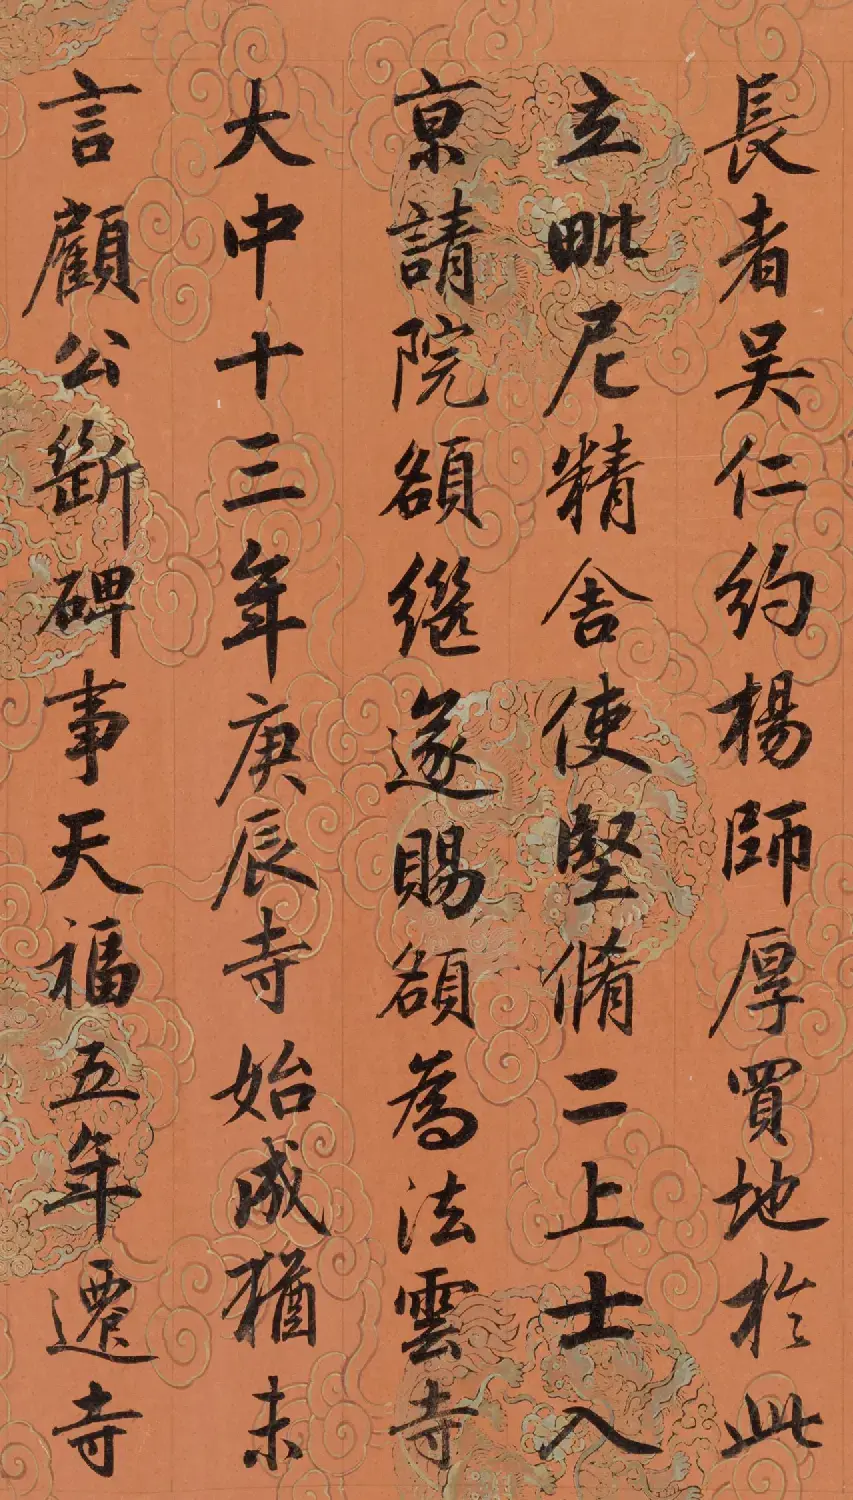 長者吳仁約楊師厚買地於此
立毗尼精舍使堅脩二上士入
京請院額繼遂賜額為法雲寺
大中十三年庚辰寺始成猶未
言顧公斷碑事天福五年遷寺